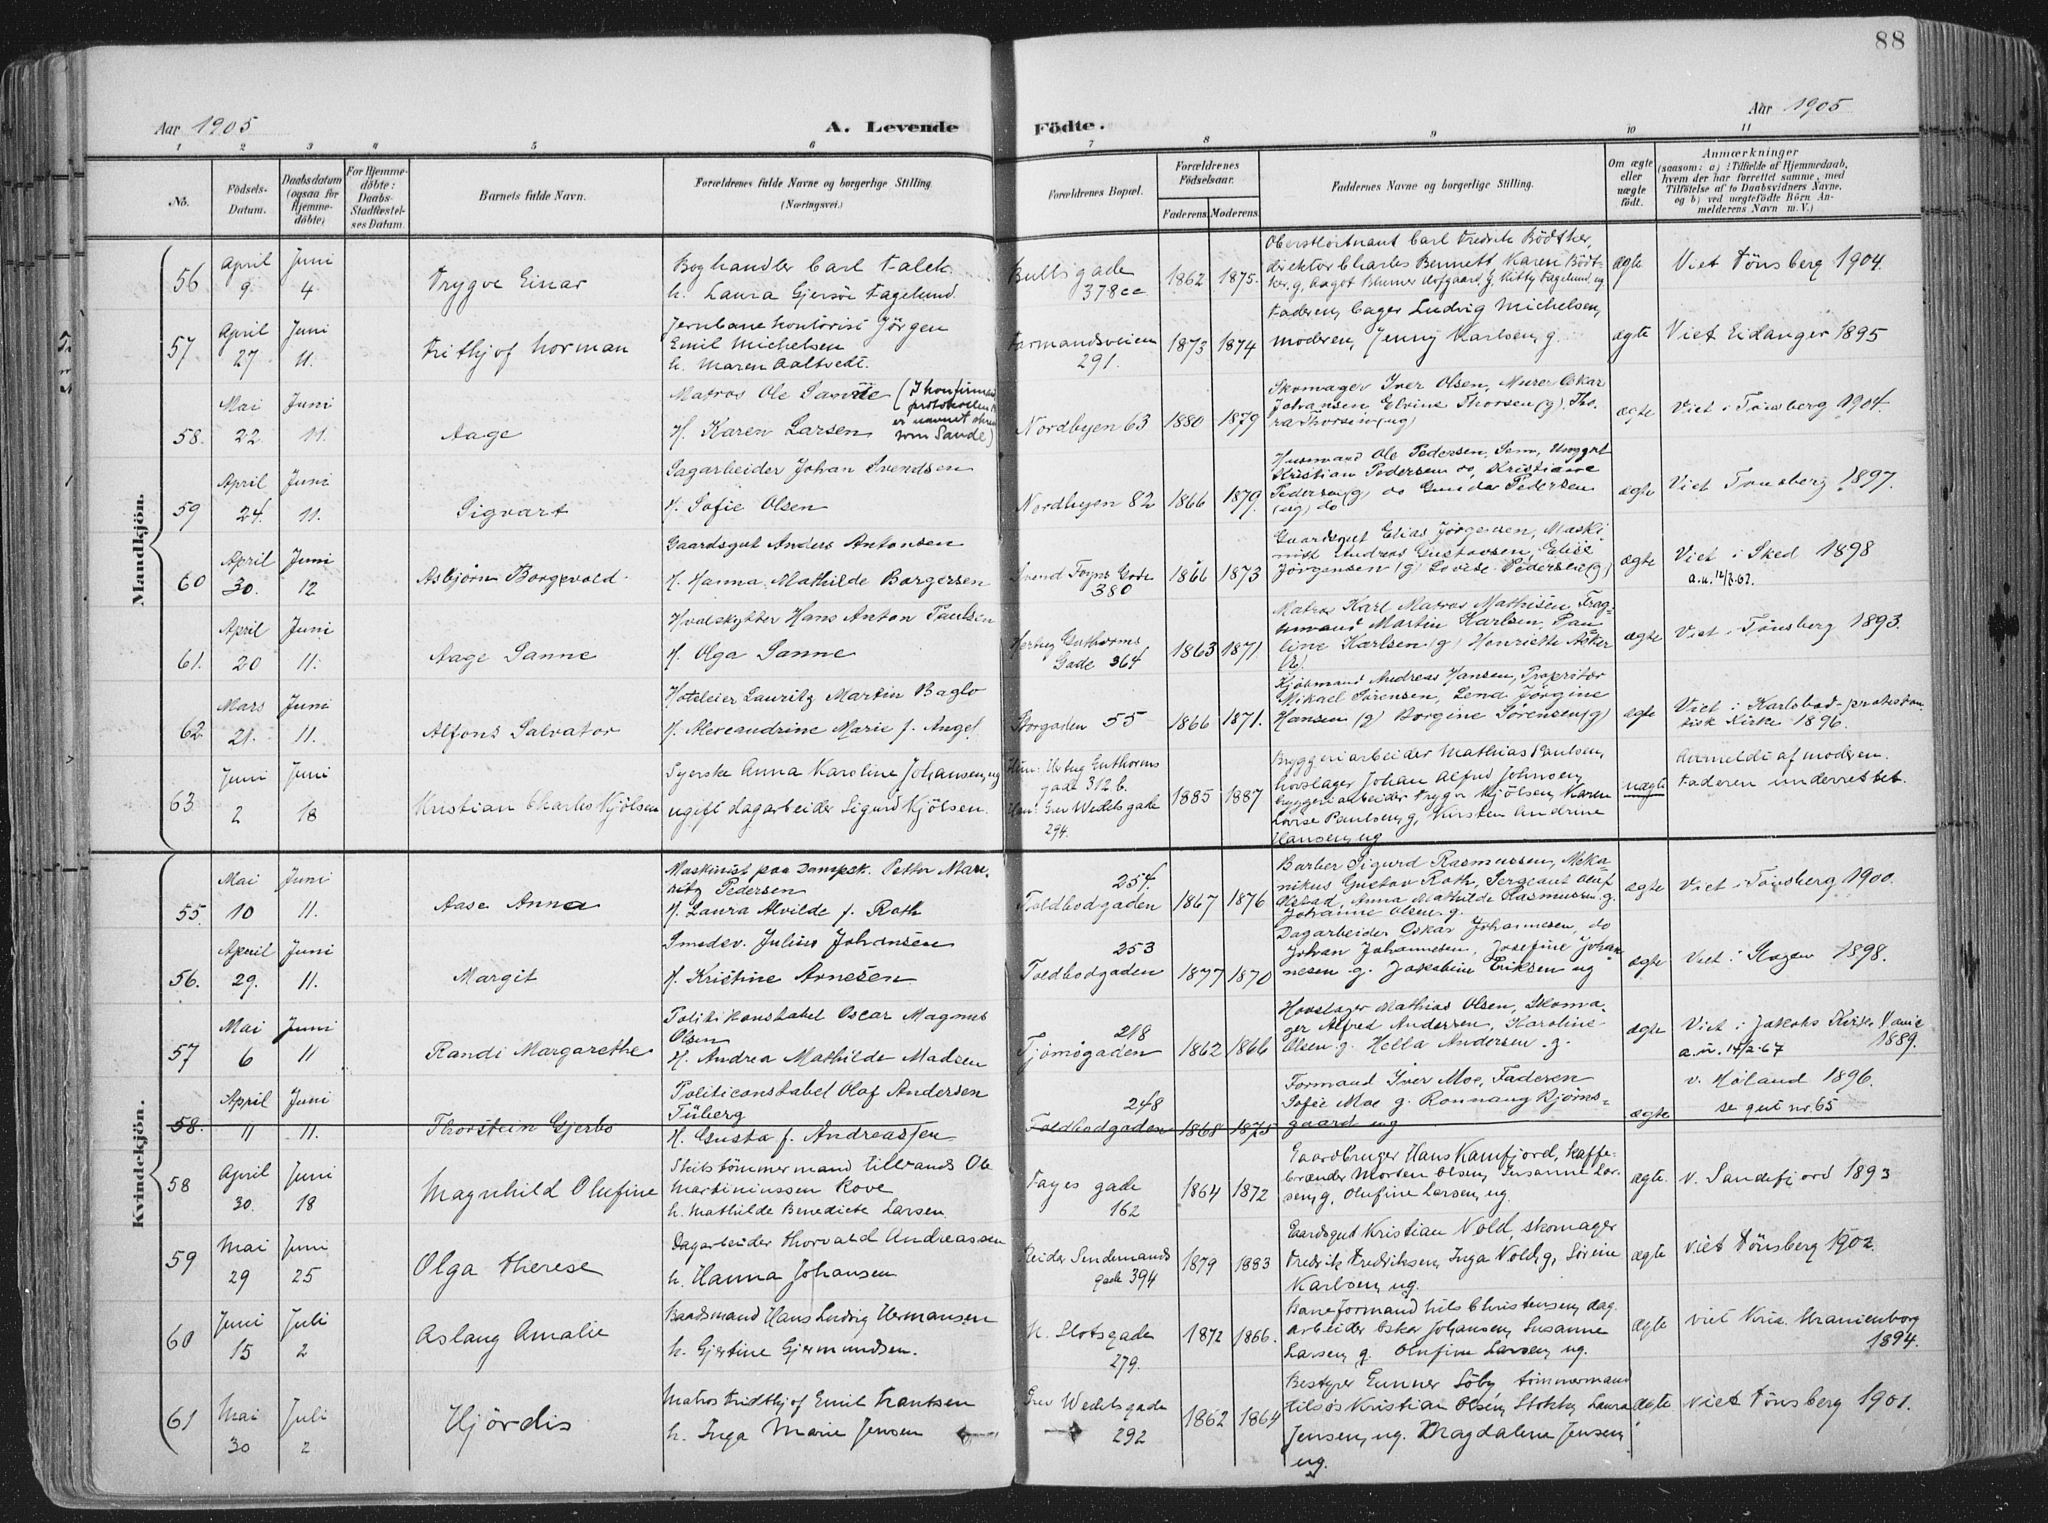 88
Aar 1905
A. Levende Födte.
Aar 1905
1 2 3 4 5 6 7 8 9 10 11
No.
Födsels-Datum.
Daabsdatum (ogsaa for Hjemmedöbte)
For Hjemmedöbte: Daabs-Stadfæstelses Datum.
Barnets fulde Navn.
Forældrenes fulde Navne og borgerlige Stilling. (Næringsvei.)
Forældrenes Bopæl.
Forældrenes Födselsaar.
Faderens. Moderens.
Faddernes Navne og borgerlige Stilling.
Om ægte eller uægte födt.
Anmærkninger
(saasom: a) i Tilfælde af Hjemmedaab, hvem der har forrettet samme, med Tilföielse af to Daabsvidners Navne, og b) ved uægtefödte Börn Anmelderens Navn m. V.)
Mandkjön.
56 April 9 Juni 4 Trygve Einar
Boghandler Carl Falck
h. Laura Gjersöe Fagelund
Bulls gade 378cc 1862 1875.
Oberstlöitnant Carl Fredrik Bödtker,
direktör Charles Bennett Karen Bödt-
ker, g, Aagot Blumer Aafgaard g. Kitty Fagelund ug
ægte Viet Tönsberg 1904.
57 April 27 Juni 11. Frithjof Norman
Jernbanekontorist Jörgen
Emil Michelsen
h. Maren Aaltvedt.
Farmandsveien 291. 1873 1874
Faderen, Bager Ludvig Michelsen,
moderen, Jenny Karlsen, g.
ægte Viet Eidanger 1895
58. Mai 22. Juni 11. Aage
Matros Ole Sanne (I konfirma
protokollen
er navnet skrev
som Sande)
H. Karen Larsen
Nordbyen 63 1880 1879
Skomager Iver Olsen, Murer Oskar
Johansen Elvine Thorsen (g). Tho-
ra Thorsen (ug)
ægte Viet i Tönsberg 1904.
59 April 24. Juni 11. Sigvart
Sagarbeider Johan Svendsen
H. Sofie Olsen
Nordbyen 82 1866 1879.
Husmand Ole Pedersen, Sem, Ungkrl
Kristian Pedersen do, Kristiane
Pedersen (g) do Gunda Pedersen
(ug) do
ægte Viet Tönsberg 1897.
60 April 30. Juni 12 Asbjörn Borgevold.
Gaardsgut Anders Antonsen
H. Hanna Mathilde Borgersen
Svend Foyns Gade 380 1866 1873
Gaardsgut Elias Jörgensen, Maski-
nist Andreas Gustavsen, Elise
Jörgensen (g) Lovise Pedersen (g)
ægte Viet i Sked 1898
a.u. 12/3.62.
61. April 20 Juni 11. Aage Sanne
Hvalskytter Hans Anton Paulsen
H. Olga Sanne
Hertug Guthorms Gade 364 1863 1871
Matros Karl Matros Mathisen, Frag-
tmand Martin Karlsen, Pau-
line Karlsen (g) Henriette Asker
(g).
ægte Viet i Tönsberg 1893.
62. Mars 21. Juni 11. Alfons Salvator
Hoteleier Lauritz Martin Baglo
H. Alexandrine Marie f. Angel
Storgaden 55 1866 1871.
Kjöbmand Andreas Hansen, Proprietær
Mikael Sörensen, Lena Jörgine
Hansen (g) Borgine Sörensen (g)
ægte Viet i Karlsbad-protestan-
tisk Kirke 1896.
63. Juni 2 Juni 18 Kristian Charles Kjölsen
Syerske Anna Karoline Johansen, ug
ugift dagarbeider Sigurd Kjölsen.
Hun: Hertug Guthorms
gade 312 b.
Han: Grev Wedels gade
294.
1885 1887
Bryggeriarbeider Mathias Paulsen,
hovslager Johan Alfred Johnsen,
bryggeriarbeider Trygve Kjölsen, Karen
Lovise Paulsen, g, Kirsten Andrine
Hansen, ug
uægte Anmeldt af moderen.
Faderen underrettet.
Kvindekjön.
55. Mai 10 Juni 11. Aase Anna
Maskinist paa Dampsk. Petter Mau-
ritz Pedersen
H. Laura Alvilde f. Roth
254. Toldbodgaden 1867 1876
Barber Sigurd Rasmussen, Meka-
nikus Gustav Roth, Sergeant Oluf
Olstad, Anna Mathilde Rasmussen g.
Johanne Olsen g.
ægte Viet i Tönsberg 1900.
56. April 29. Juni 11. Margit
Smedsv. Julius Johansen
H. Kristine Arnesen
253 Toldbodgaden 1877 1870
Dagarbeider Oskar Johannesen, do
Johan Johannesen, Josefine Johan-
nesen g. Jakobine Eriksen ug
ægte Viet i Skogn 1898.
57 Mai 6 Juni 11 Randi Margarethe
Politikonstabel Oscar Magnus
Olsen
H. Andrea Mathilde Madsen
218 Tjömögaden 1862 1866
Hovslager Mathias Olsen, Skoma-
ger Alfred Andersen, Karoline
Olsen g. Hella Andersen g.
ægte Viet i Jakobs Kirke
1889.
a.u. 14/2-67
58. April 11 Juni 11. Thorstein Gjerbo
Politiconstabel Olaf Andersen
Tüberg
H. Gusta f. Andreassen
248 Toldbodgaden 1868 1875
Formand Iver Moe, Faderen
Sofie Moe g. Ronnaug Björns-
gaard ug
ægte v. Höland 1896.
se gut nr. 65
58 April 30. Juni 18 Magnhild Olufine
Skibstömmermand Tillrands Ole
Martiniussen Rove
h. Mathilde Benedicte Larsen.
Fayes gade 162 1864 1872
Gaardbruger Hans Kamfjord, Kaffe-
brænder Morten Olsen, Susanne Lar-
sen, g, Olufine Larsen, ug.
ægte. v. Sandefjord 1893
59 Mai 29 Juni 25 Olga Therese
Dagarbeider Thorvald Andreassen
h. Hanna Johansen
Reidar Sendemands gade 394 1879 1883
Gaardsgut Kristian Nold, skomager
Fredrik Fredriksen, Inga Nold, g, Sörine
Karlsen, ug.
ægte Viet Tönsberg 1902.
60 Juni 15 Juli 2 Aslaug Amalie
Baadsmand Hans Ludvig Hermansen
h. Gjertine Gjermundsen.
N. Slotsgade 279. 1872 1866.
Baneformand Nils Christensen, dag-
arbeider Oskar Johansen, Susanne
Larsen, g. Olufine Larsen, ug.
ægte Viet Kria. Uranienborg
1894.
61 Mai 30 Juli 2 Hjördis
Matros Fridthjof Emil Frantsen
h. Inga Marie Jensen
Grev Wedelsgade 292 1862 1864
Bestyrer Gunner Söby tömmermand
Nils Kristian Olsen, Stokke, Laura
Jensen, ug. Magdalene Jensen,
ug.
ægte Viet Tönsberg 1901.